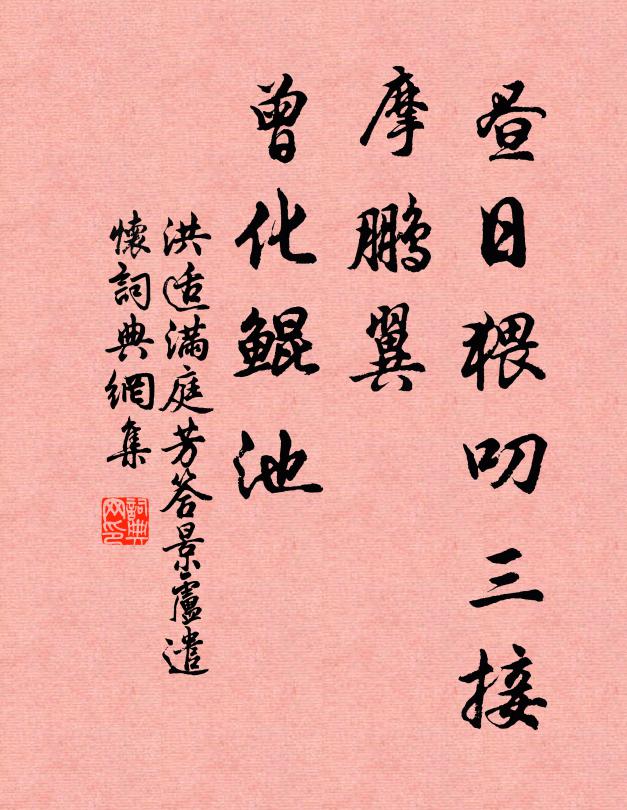 昼日猥叨三接
摩鵬翼
曾化鯤池
洪适滿庭芳答景盧遣
懷詞典網集
詞典网印